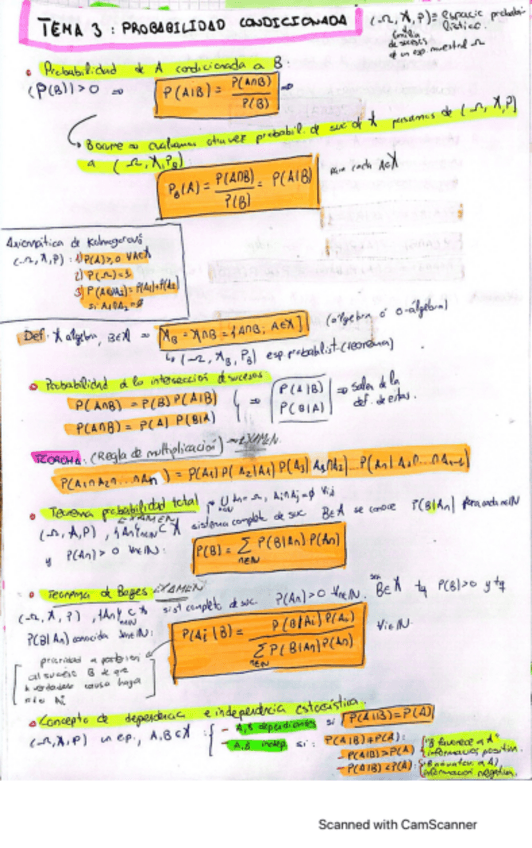 TEMA 3 : PROBABILIDAD CONDICIONADA
(Ω, X, P) = Espacio probabilístico.
familia de sucesos
• Probabilidad de A condicionada a B:
(P(B)) > 0 ⇒ P(A|B) = P(A∩B) / P(B) ⇒
B ocurre ⇒ evaluamos otra vez probabil. de suc de X pasamos de (Ω, X, P)
a (Ω, X, P_B)
P_B(A) = P(A∩B) / P(B) = P(A|B) para cada A∈X
Axiomática de Kolmogorov
(Ω, X, P) : 1) P(A) ≥ 0 ∀A∈X
2) P(Ω) = 1
3) P(A₁∪A₂) = P(A₁)+P(A₂)
si A₁∩A₂ = ∅
Def: X algebra, B∈X ⇒ X_B = X∩B = {A∩B, A∈X} (algebra ó σ-algebra)
↳ (Ω, X_B, P_B) esp probabilist. (teorema)
• Probabilidad de la intersección de sucesos
P(A∩B) = P(B) P(A|B)
P(A∩B) = P(A) P(B|A)
⇒ P(A|B) P(B|A) ⇒ Salen de la def. de estas.
TEOREMA: (Regla de multiplicación) → EXAMEN
P(A₁∩A₂...∩An) = P(A₁) P(A₂|A₁) P(A₃|A₁∩A₂)...P(An|A₁∩...∩An-1)
• Teorema probabilidad total ∪An = Ω, Ai∩Aj = ∅ ∀i,j
EXAMEN
(Ω, A, P), {An}n∈N ⊂ X sistema completo de suc. B∈X se conoce P(B|An) para cada n∈N
y P(An) > 0 ∀n∈N: P(B) = ∑n∈N P(B|An) P(An)
• Teorema de Bayes EXAMEN
(Ω, A, P), {An}n∈N ⊂ X sist completo de suc. P(An) > 0 ∀n∈N. sea B∈X tq P(B)>0 y tq
P(B|An) conocida ∀n∈N: P(Ai|B) = P(B|Ai) P(Ai) / ∑n∈N P(B|An) P(An) ∀i∈N.
a posteriori
al suceso B de que
causa haya
sido Ai
• Concepto de dependencia e independencia estocástica.
(Ω, A, P) un e.p., A,B∈X : - A,B dependientes si P(A|B)=P(A)
- A,B indep si: P(A|B)≠P(A):
- P(A|B)>P(A) ("B favorece a A" información positiva.
- P(A|B)<P(A) información negativa.
Scanned with CamScanner